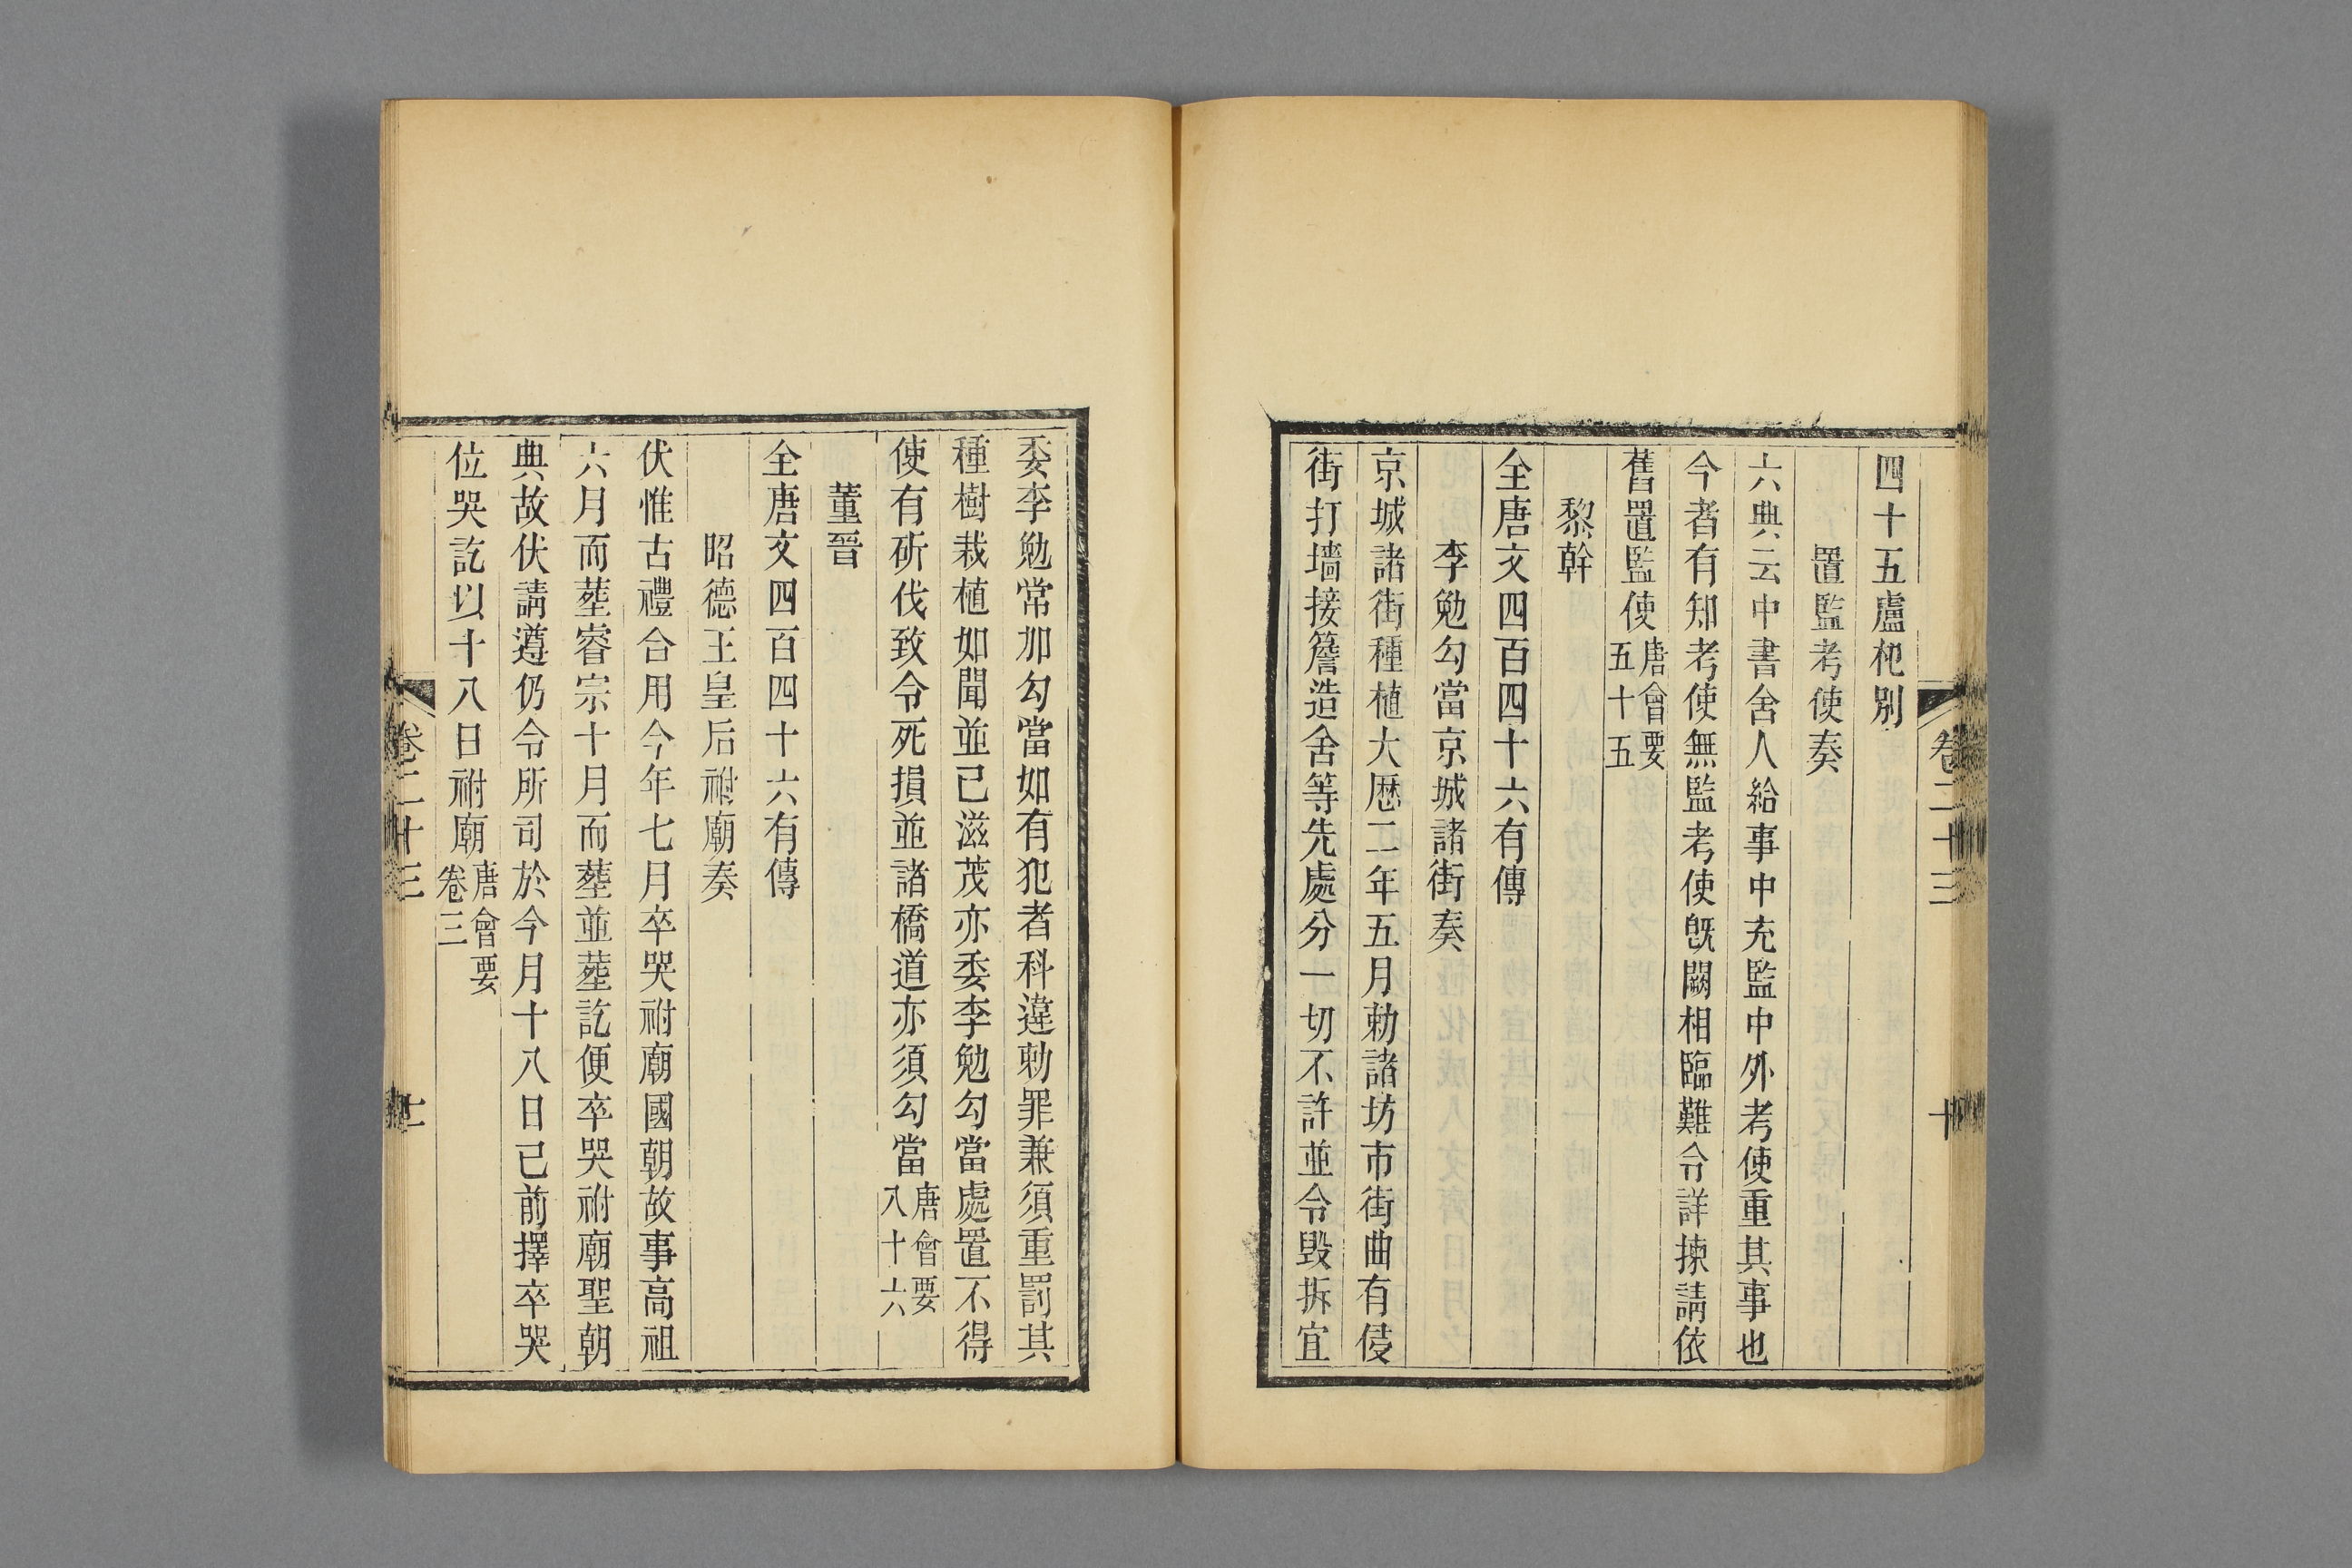 卷二十三
十
四十五盧杞別
置監考使奏
六典云中書舍人給事中充監中外考使重其事也
今者有知考使無監考使旣闕相臨難令詳揀請依
舊置監使唐會要五十五
黎幹
全唐文四百四十六有傳
李勉勾當京城諸街奏
京城諸街種植大厯二年五月勅諸坊市街曲有侵
街打墻接簷造舍等先處分一切不許並令毀拆宜
委李勉常加勾當如有犯者科違勅罪兼須重罰其
種樹栽植如聞並已滋茂亦委李勉勾當處置不得
使有斫伐致令死損並諸橋道亦須勾當唐會要八十六
董晉
全唐文四百四十六有傳
昭德王皇后祔廟奏
伏惟古禮合用今年七月卒哭祔廟國朝故事高祖
六月而塟睿宗十月而塟並塟訖便卒哭祔廟聖朝
典故伏請遵仍令所司於今月十八日已前擇卒哭
位哭訖以十八日祔廟唐會要卷三
卷二十三